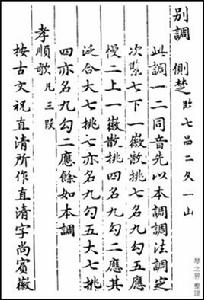 別調 側楚
此調一二同音先以本調調法調定
次緊七下一徽散挑七名九勾五應
慢二上一徽散挑四名九勾二應其
泛合大七挑七亦名九勾五大七挑
四亦名九勾二應餘如本調
孝順歌 凡三見
按古文祝直清所作直清字尚賓徽
琴之界 整理